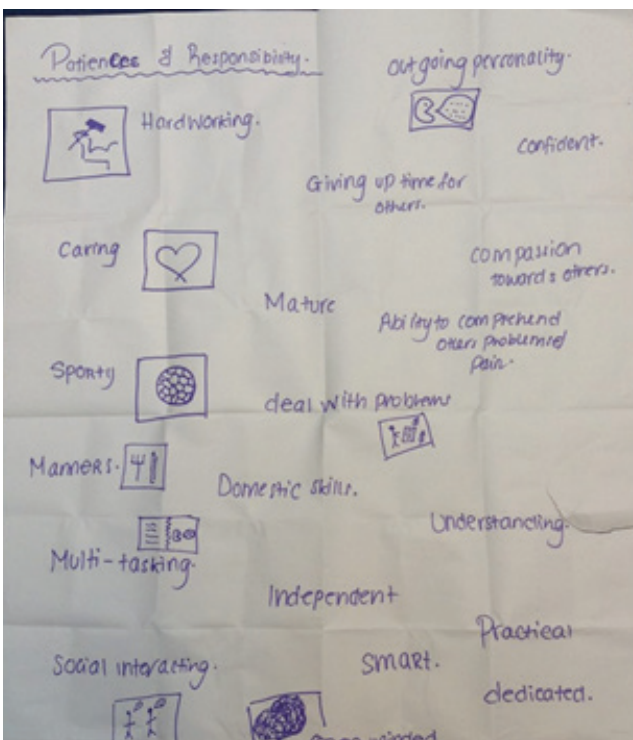 Patiences & Responsibility.
outgoing personality.
Hardworking.
confident.
Giving up time for
others.
Caring
compassion
towards others.
Mature
Ability to comprehend
others problems/
pain.
Sporty
deal with problems
Manners.
Domestic skills.
Understanding.
Multi-tasking.
Independent
Practical
Social interacting.
smart.
dedicated.